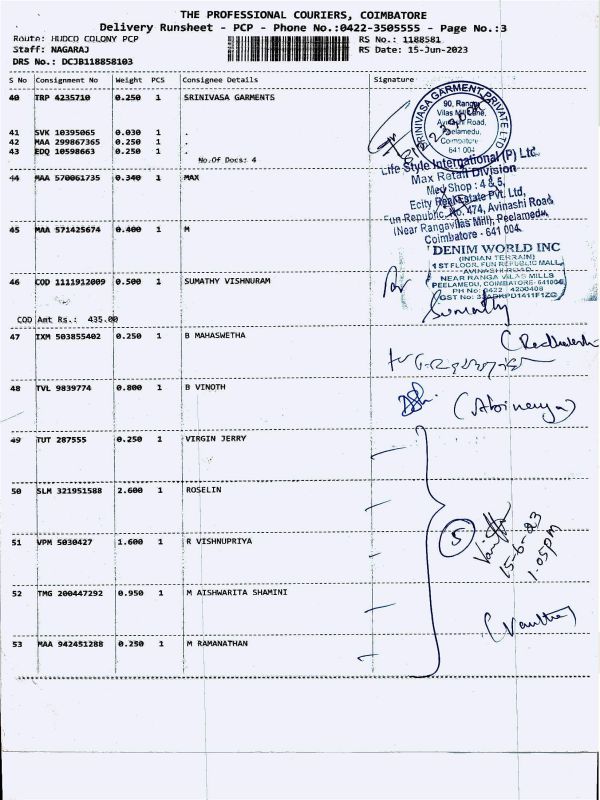 THE PROFESSIONAL COURIERS, COIMBATORE
Delivery Runsheet - PCP - Phone No.:0422-3505555 - Page No.:3
Route: HUDCO COLONY PCP
RS No.: 1188581
Staff: NAGARAJ
RS Date: 15-Jun-2023
DRS No.: DCJB118858103
S No Consignment No Weight PCS Consignee Details Signature
40 TRP 4235710 0.250 1 SRINIVASA GARMENTS
41 SVK 10395065 0.030 1 .
42 MAA 299867365 0.250 1 .
43 EDQ 10598663 0.250 1 .
No.Of Docs: 4
SRINIVASA GARMENT PRIVATE LTD
90, Rangavilas Mill Lane,
Avinashi Road,
Peelamedu,
Coimbatore
641 004
44 MAA 570061735 0.340 1 MAX
Life Style International (P) Ltd.,
Max Retail Division
Med Shop : 4 & 5,
Ecity Real Estate Pvt. Ltd,
Fun Republic, No. 474, Avinashi Road
(Near Rangavilas Mill), Peelamedu,
Coimbatore - 641 004.
45 MAA 571425674 0.400 1 M
DENIM WORLD INC
(INDIAN TERRAIN)
1 ST FLOOR, FUN REPUBLIC MALL,
AVINASHI ROAD
NEAR RANGA VILAS MILLS
PEELAMEDU, COIMBATORE- 641004
PH No: 0422
46 COD 1111912009 0.500 1 SUMATHY VISHNURAM
Sumathy
COD Amt Rs.: 435.00
47 IXM 503855402 0.250 1 B MAHASWETHA
48 TVL 9839774 0.800 1 B VINOTH
(Abinaya)
49 TUT 287555 0.250 1 VIRGIN JERRY
50 SLM 321951588 2.600 1 ROSELIN
51 VPM 5030427 1.600 1 R VISHNUPRIYA
5
15-6-23
1.05PM
52 TMG 200447292 0.950 1 M AISHWARITA SHAMINI
53 MAA 942451288 0.250 1 M RAMANATHAN